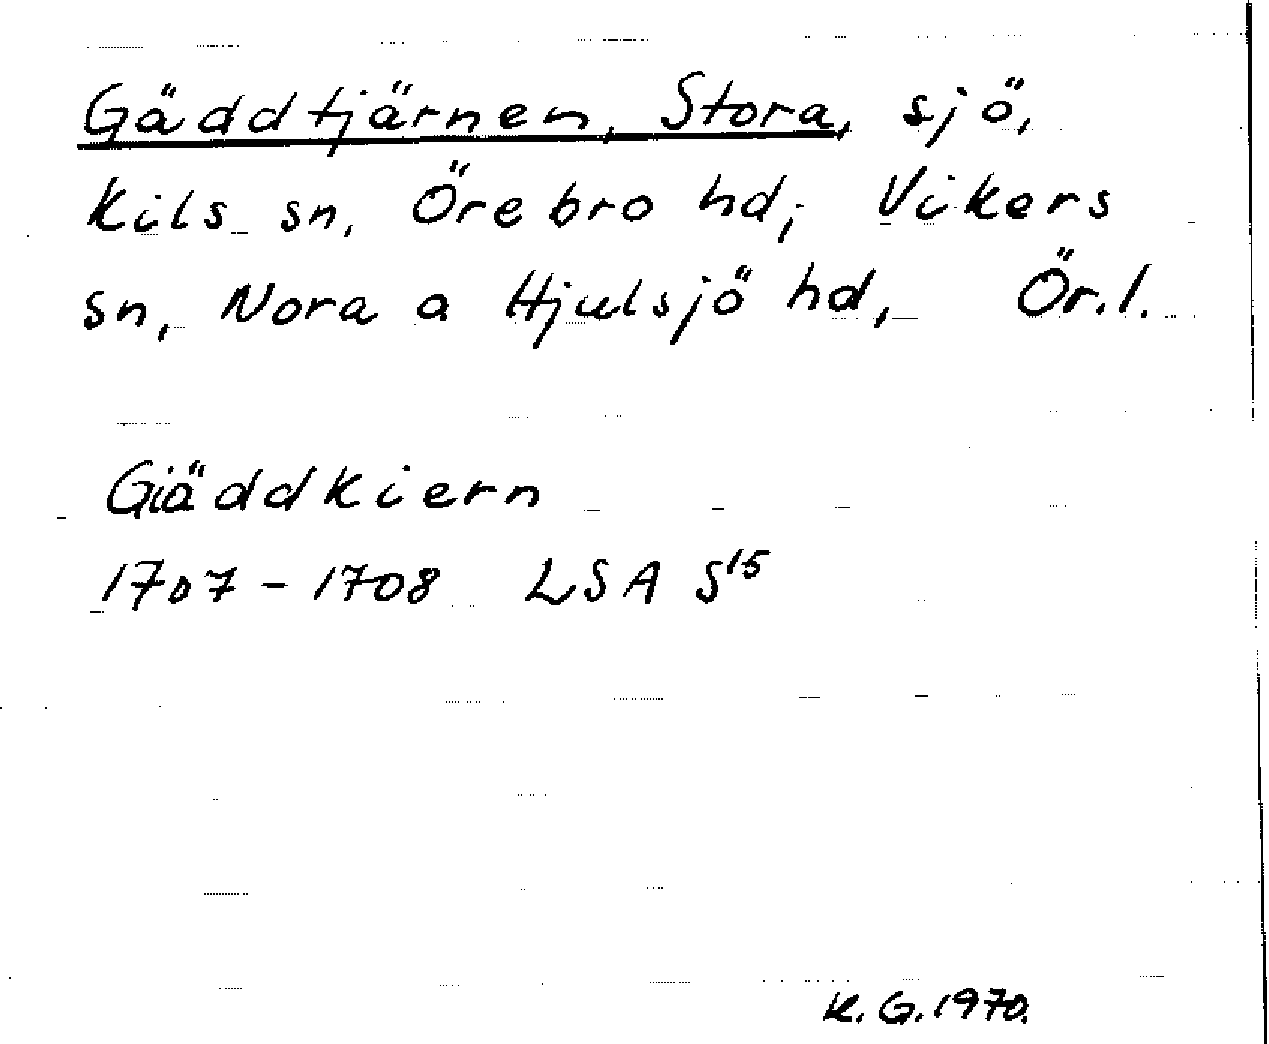 Gäddtjärnen, Stora, sjö,
Kils sn, Örebro hd; Vikers
sn, Nora o Hjulsjö hd, Ör.l.
Giäddkiern
1707-1708 LSA S¹⁵
K.G.1970.